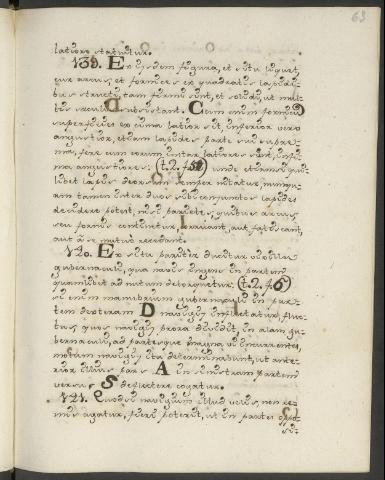 63
latiore statuitur.
139. Ex ejsdem figura, et situ liquet,
cur arcus, et fornices ex quadratis lapidi-
bus structi, tam firmi sunt, et solidi, ut mul-
tis sæculis subsistant. Cum enim fornicis
superficies ex cima latior sit, inferior vero
angustior, etiam lapides parte sui supre-
ma, fere cum eorum instar latiores sunt, infi-
ma angustiores: (t.2. f.58) unde etiamsi qui-
libet lapis deorsum semper nitatur, nunqu-
am tamen inter duos sibi conjunctos lapides
decidere potest, nisi parietes, quibus arcus,
seu fornix continetur, aut fatiscant,
aut a se mutuo recedant.
Ex situ pariter ducitur
gubernaculi, qua navis ingens in partem
quamlibet ad nutum detorquetur. (t.2. f.6)
si enim manubrium gubernaculi in par-
tem dexteram D navigij inflectatur, fluc-
tus, quos navigij prora dividit, in alam gu-
bernaculi, ad partesque magna vi incurrentes,
motum navigij ita determinabunt, ut ante-
rior illius pars A in sinistram partem
versus S deflectere cogatur.
121. Quodsi navigium illud velis, non re-
mis agatur, fieri poterit, ut in partes oppo-
si-